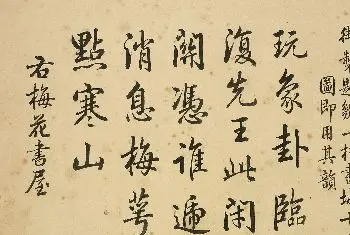 御製題
圖即用其韻
玩象卦臨
復先王此閉
關憑誰遞
消息梅萼
點寒山
右梅花書屋